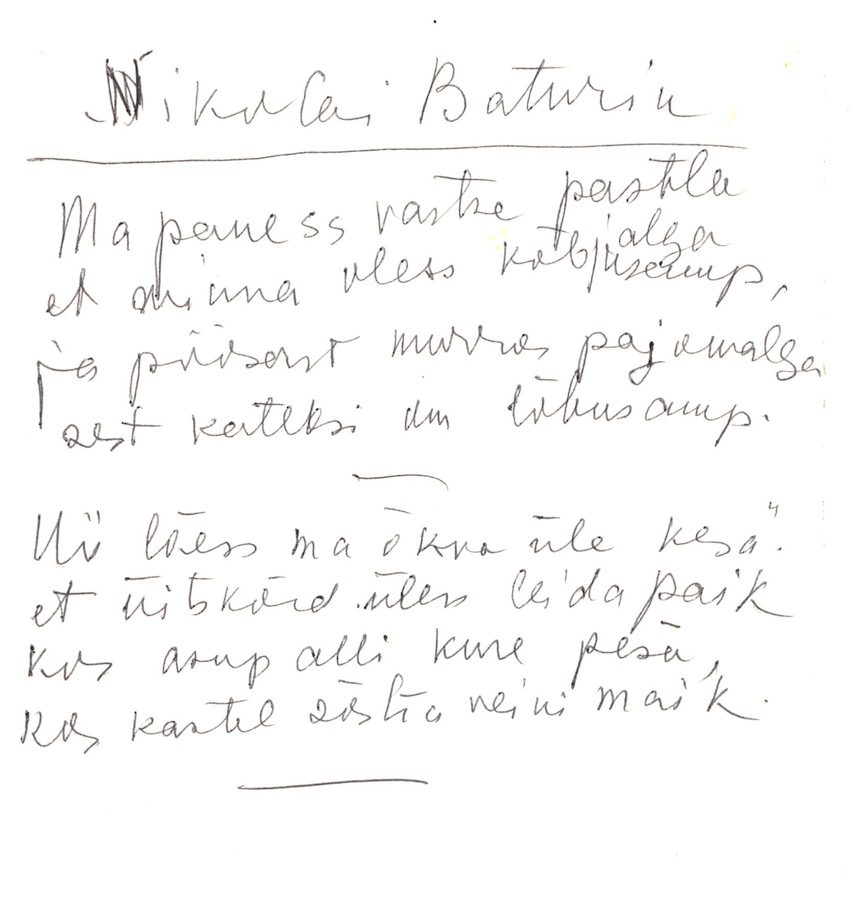 Nikolai Baturin
Ma paness vastse pastla jalga
et minna üless kõbjusamp,
ja põõsast murras paju malga
sest keteksi um lõbusamp.
Nii lääss ma õkva üle kesä
et ütskõrd üless leida paik
kos asup alli kure pesä,
kos kastel sõstra veini maik.